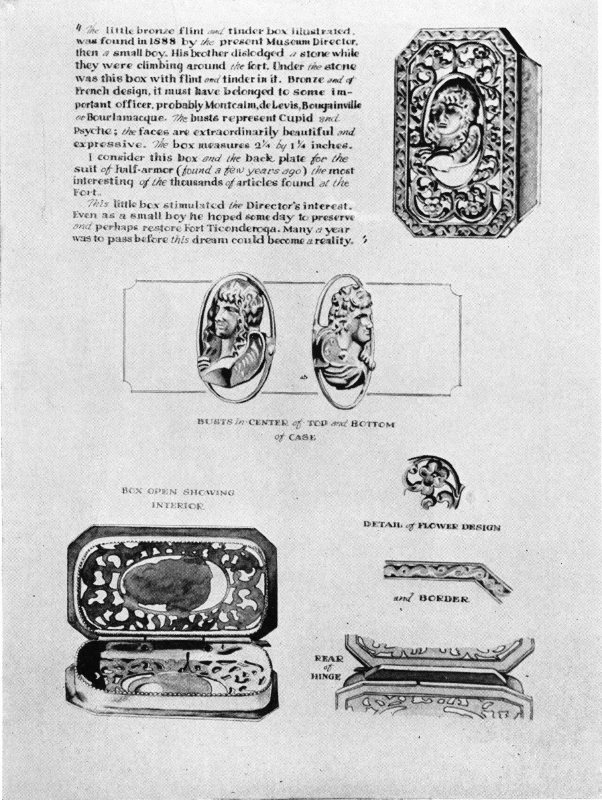 " The little bronze flint and tinder box illustrated,
was found in 1888 by the present Museum Director,
then a small boy. His brother dislodged a stone while
they were climbing around the fort. Under the stone
was this box with flint and tinder in it. Bronze and of
French design, it must have belonged to some im-
portant officer, probably Montcalm, de Levis, Bougainville
or Bourlamacque. The busts represent Cupid and
Psyche; the faces are extraordinarily beautiful and
expressive. The box measures 2¼ by 1¼ inches.
I consider this box and the back plate for the
suit of half-armor (found a few years ago) the most
interesting of the thousands of articles found at the
Fort.
This little box stimulated the Director's interest.
Even as a small boy he hoped some day to preserve
and perhaps restore Fort Ticonderoga. Many a year
was to pass before this dream could become a reality. "
BUSTS in CENTER of TOP and BOTTOM
of CASE
BOX OPEN SHOWING
INTERIOR
DETAIL of FLOWER DESIGN
and BORDER
REAR
of
HINGE